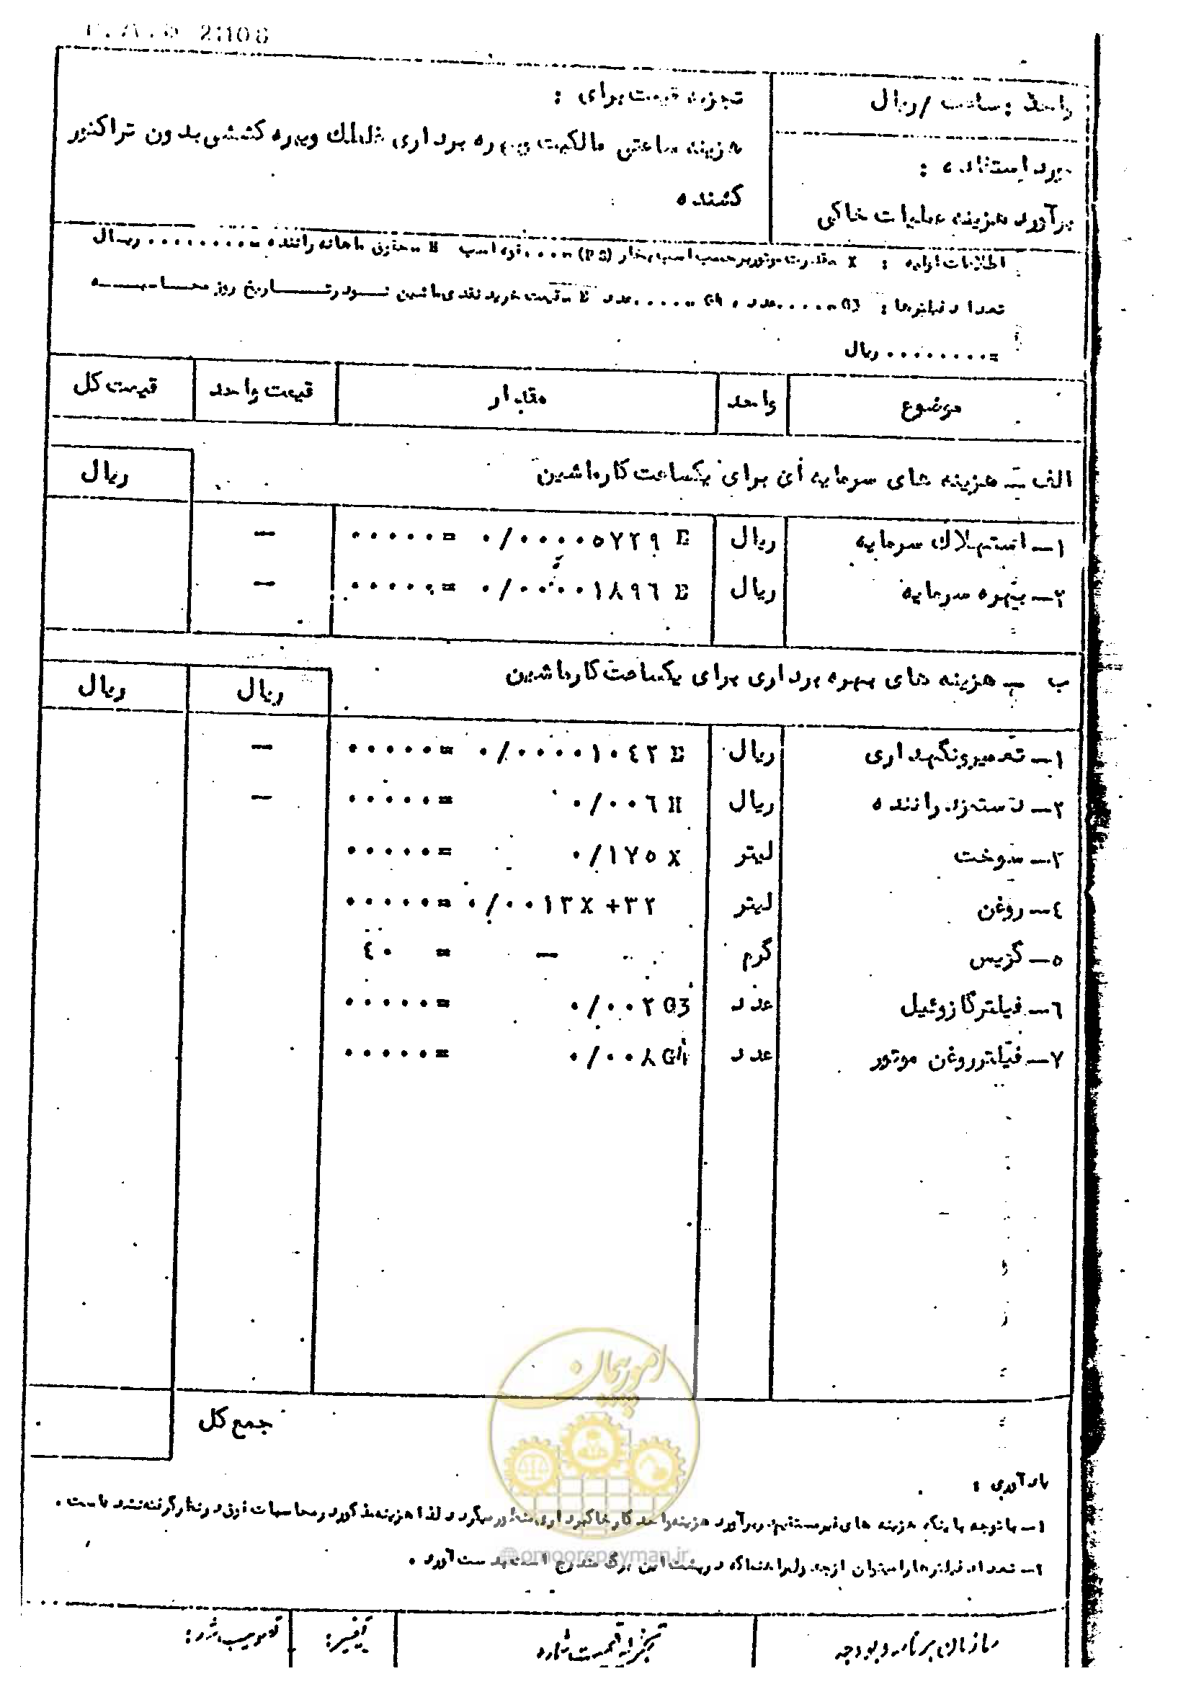 2:106
واحد : ساعت / ریال
مورد استفاده :
برآورد هزینه عملیات خاکی
تجزیه قیمت برای :
هزینه ساعتی مالکیت وبهره برداری غلطك ویبره کششی بدون تراکتور
کشنده
اطلاعات اولیه : X = قدرت موتور برحسب اسب بخار (PS) = .... قوه اسب H = حقوق ماهانه راننده = ......... ریال
تعداد فیلترها : G3 = ..... عدد و G4 = ..... عدد E = قیمت خرید نقدی ماشین نو در تاریخ روز محاسبه
= ........ ریال
موضوع واحد مقدار قیمت واحد قیمت کل
الف ـ هزینه های سرمایه ای برای یکساعت کار ماشین ریال
١ـ استهلاك سرمایه ریال ٠/٠٠٠٠٥٧٢٩ E = ..... —
٢ـ بهره سرمایه ریال ٠/٠٠٠٠١٨٩٦ E = ..... —
ب ـ هزینه های بهره برداری برای یکساعت کار ماشین ریال ریال
١ـ تعمیرونگهداری ریال ٠/٠٠٠٠١٠٤٢ E = ..... —
٢ـ دستمزد راننده ریال ٠/٠٠٦ H = ..... —
٣ـ سوخت لیتر ٠/١٧٥ X = .....
٤ـ روغن لیتر ٠/٠٠١٣ X + ٣٢ = .....
٥ـ گریس گرم — = ٤٠
٦ـ فیلتر گازوئیل عدد ٠/٠٠٢ G3 = .....
٧ـ فیلتر روغن موتور عدد ٠/٠٠٨ G4 = .....
جمع کل
یادآوری :
١ـ با توجه باینکه هزینه های غیرمستقیم در برآورد هزینه واحد کار خاکبرداری منظور میگردد لذا هزینه مذکور در محاسبات فوق در نظر گرفته نشده است .
٢ـ تعداد فیلترها را میتوان از جدول راهنما که در پشت این برگ مندرج است بدست آورد .
امور پیمان
@omoorepeyman.ir
سازمان برنامه و بودجه تجزیه قیمت شماره تغییر: تصویب شد: